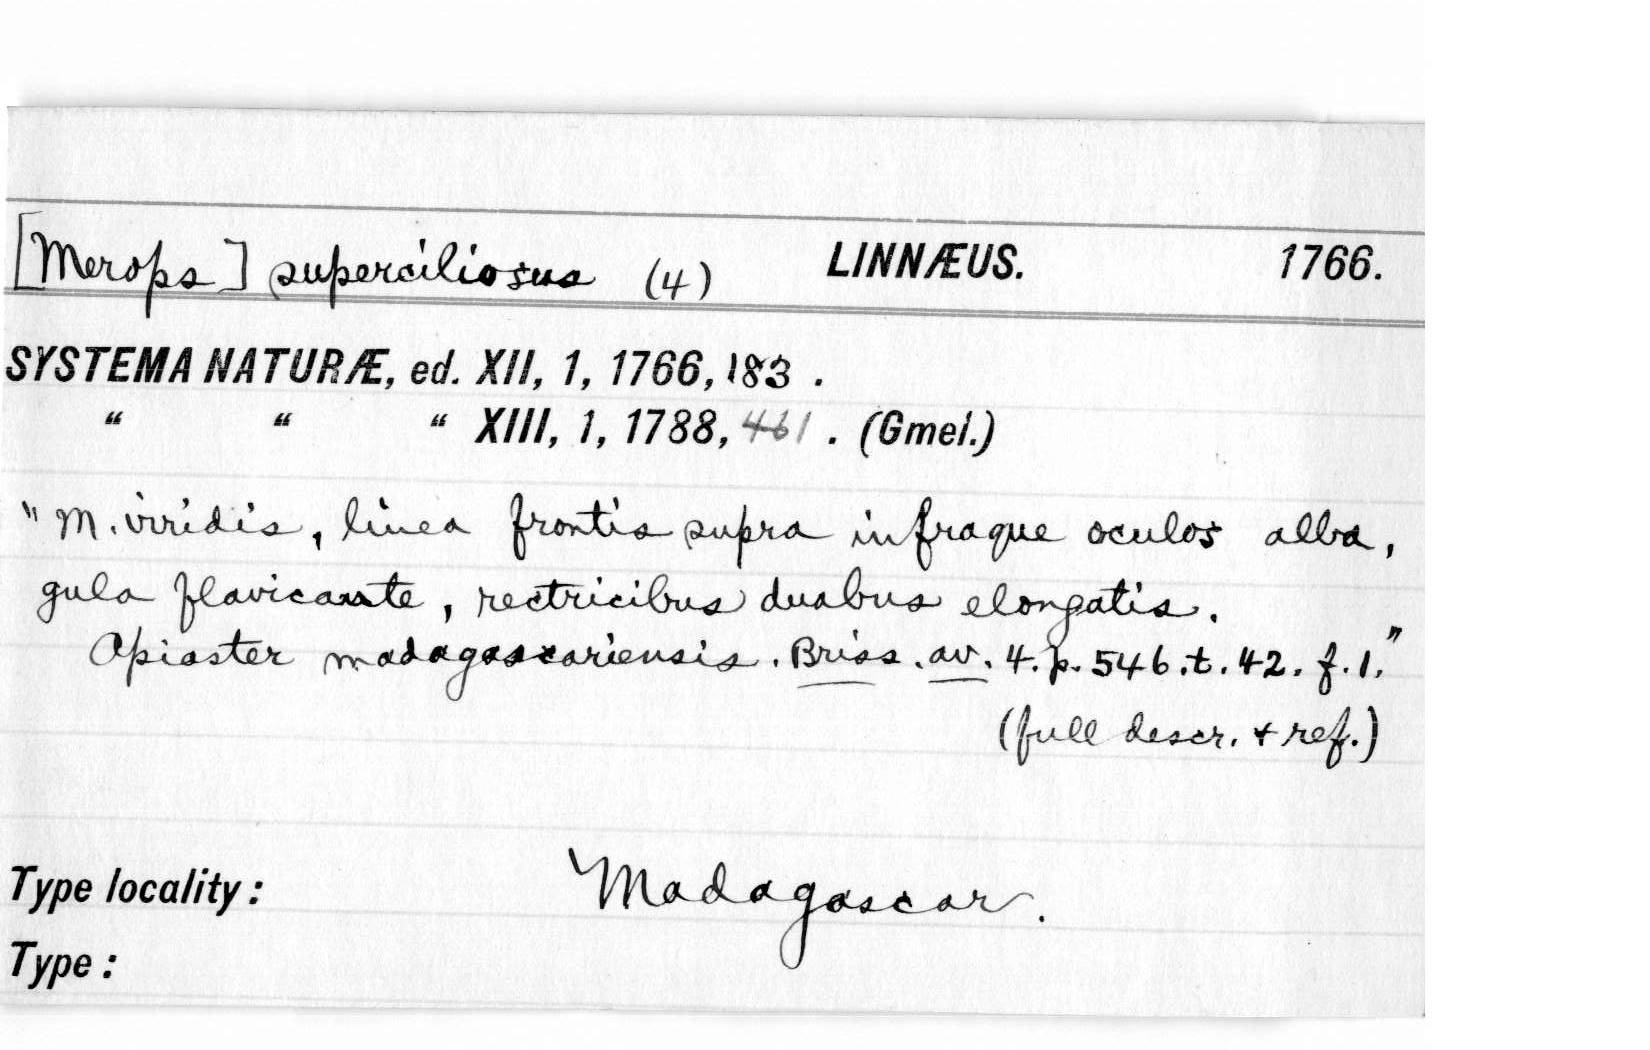 [Merops] superciliosus (4) LINNÆUS. 1766.
SYSTEMA NATURÆ, ed. XII, 1, 1766, 183.
" " " XIII, 1, 1788, 461. (Gmel.)
"M. viridis, linea frontis supra infraque oculos alba,
gula flavicante, rectricibus duabus elongatis.
Apiaster madagascariensis. Briss. av. 4. p. 546. t. 42. f. 1."
(full descr. + ref.)
Type locality: Madagascar.
Type: